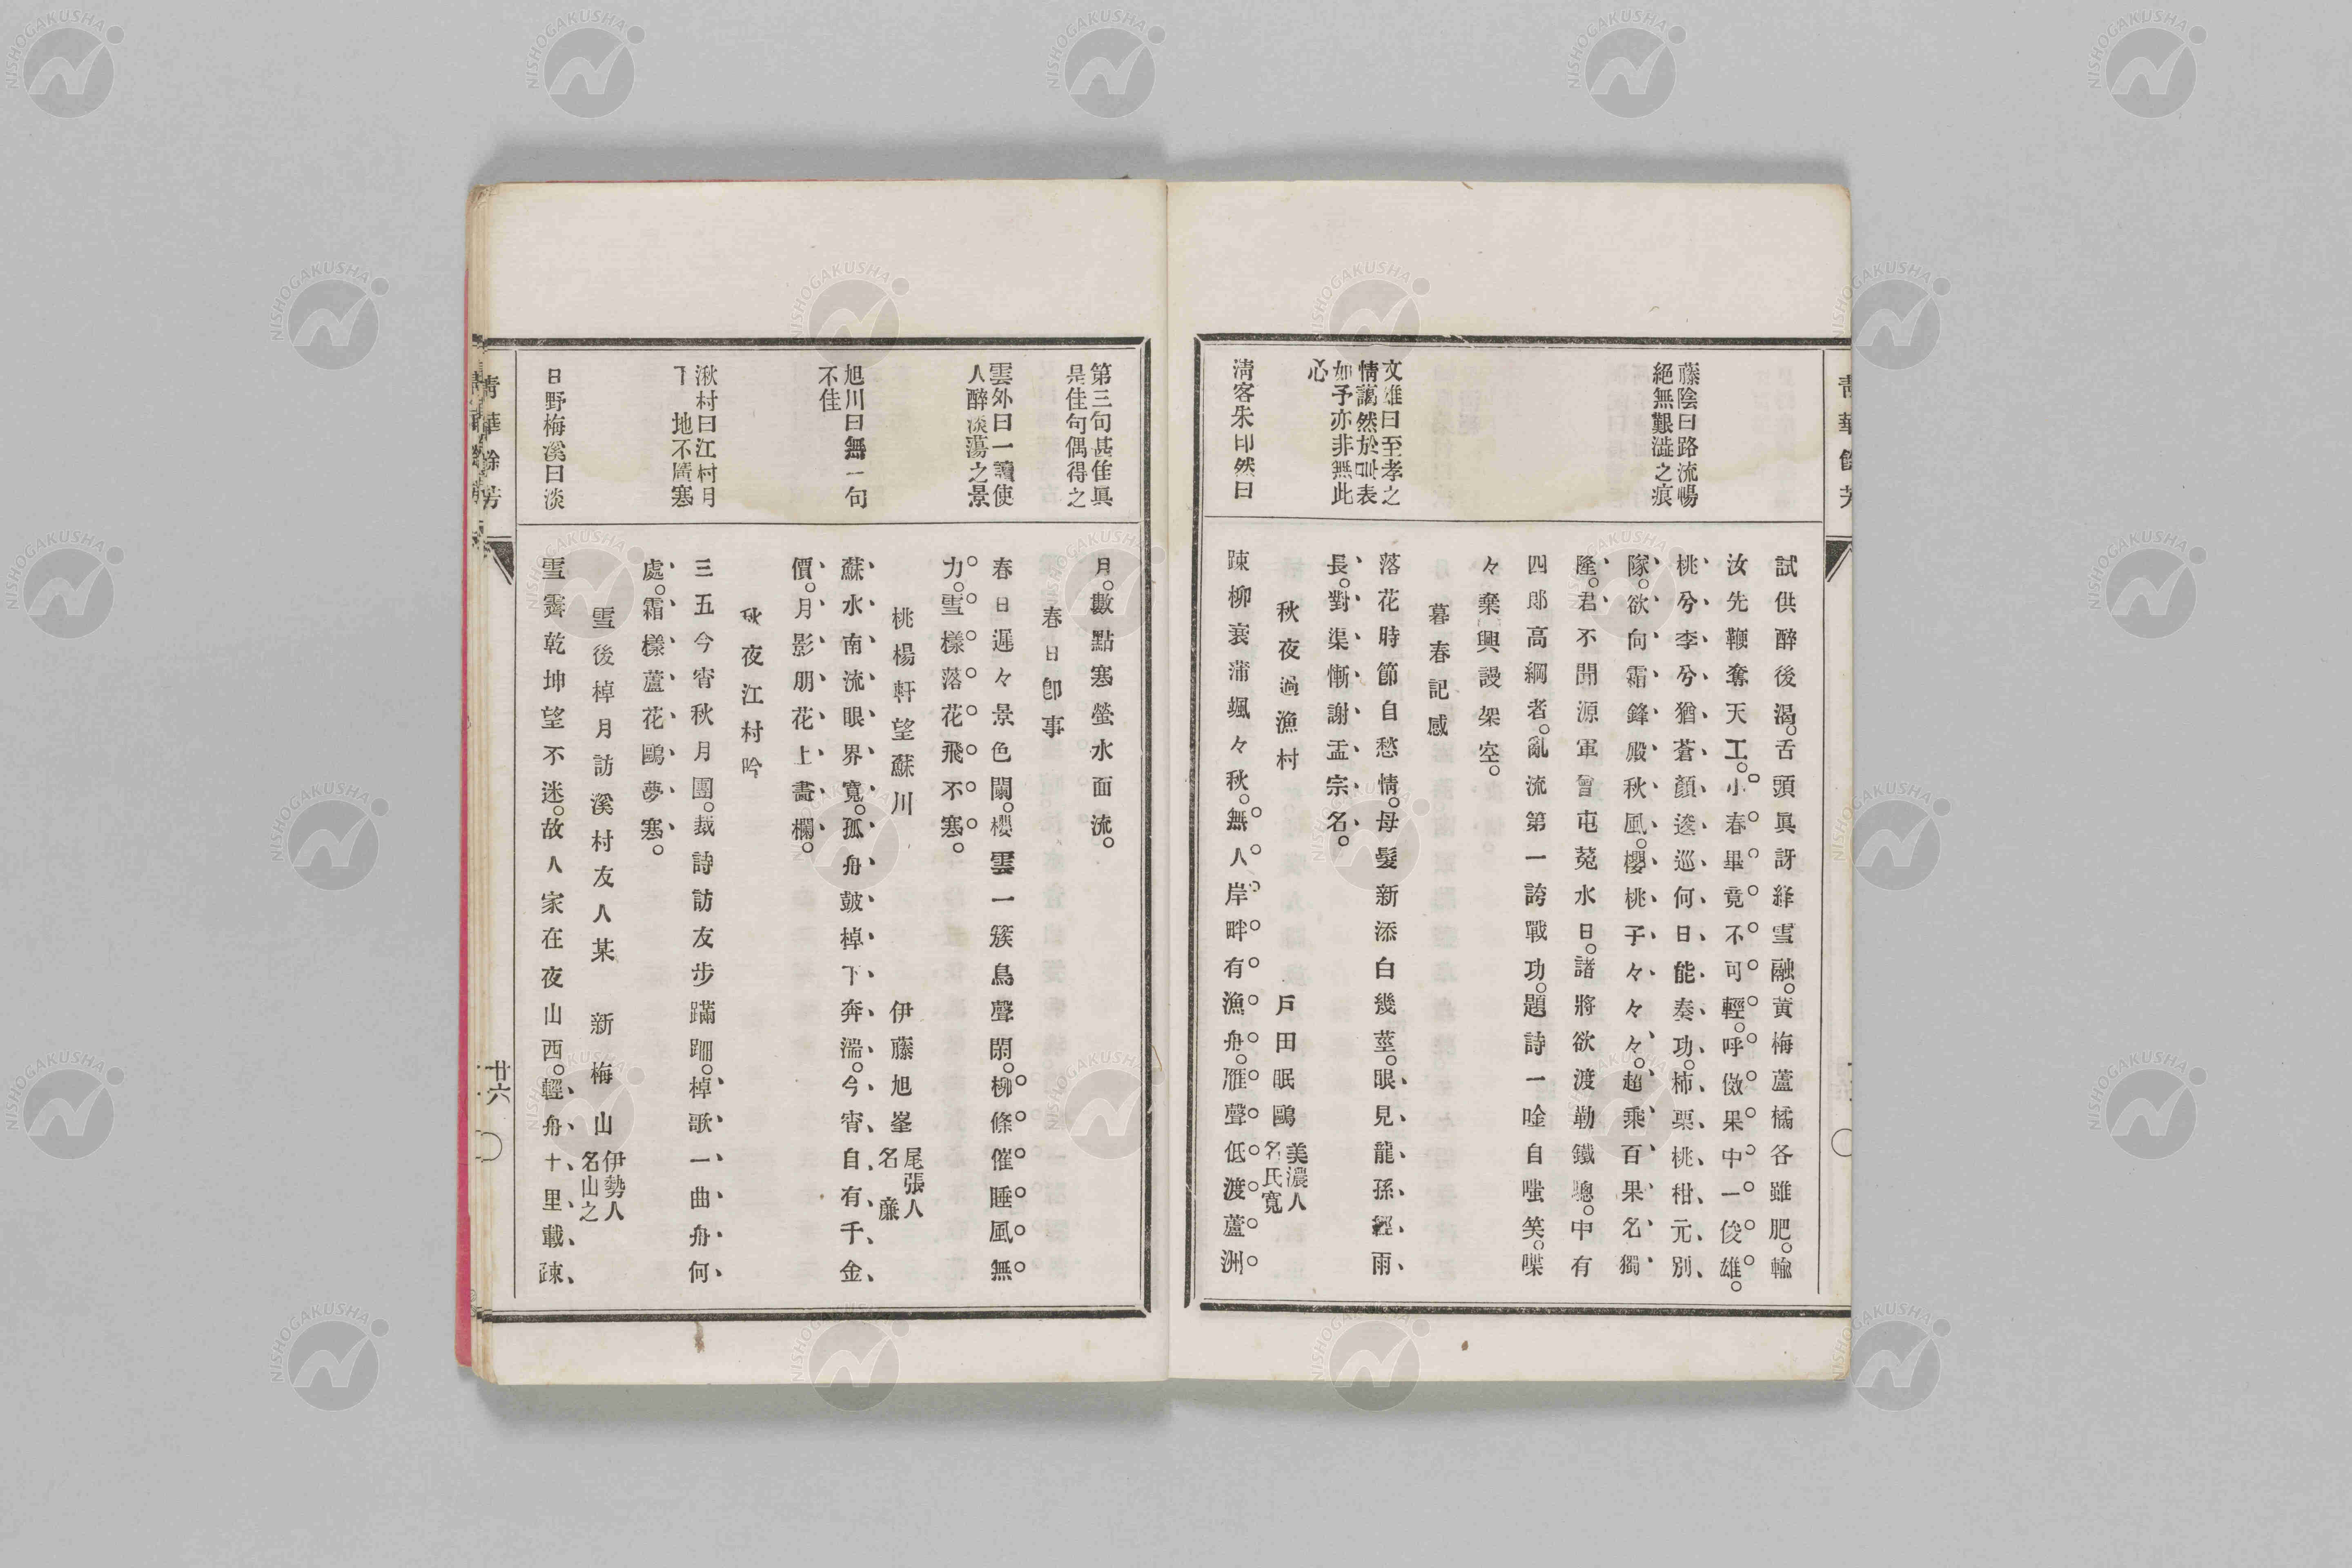 靑華餘芳
藤陰曰路流暢
絕無艱澁之痕
文雄曰至孝之
情藹然於言表
如予亦非無此
心
淸客朱印然曰
試供醉後渴。舌頭眞訝絳雪融。黃梅蘆橘各雖肥。輸
汝先鞭奪天工。小春畢竟不可輕。呼做果中一俊雄。
桃兮李兮猶蒼顏。逡巡何日能奏功。柿栗桃柑元別
隊。欲向霜鋒殿秋風。櫻桃子々々々。超乘百果名獨
隆。君不聞源軍曾屯菟水日。諸將欲渡勒鐵驄。中有
四郎高綱者。亂流第一誇戰功。題詩一唫自嗤笑。喋
々棄興謾架空。
暮春記感
落花時節自愁情。母髮新添白幾莖。眼見龍孫經雨
長。對渠慚謝孟宗名。
秋夜過漁村 戶田眠鷗 美濃人名氏寬
踈柳衰蒲颯々秋。無人岸畔有漁舟。雁聲低渡蘆洲
第三句甚佳眞
是佳句偶得之
雲外曰一讀使
人醉淡蕩之景
旭川曰無一句
不佳
湫村曰江村月
下 地不廣寒
日野梅溪曰淡
月。數點寒螢水面流。
春日卽事
春日遲々景色闌。櫻雲一簇鳥聲閑。柳條催睡風無
力。雪樣落花飛不寒。
桃楊軒望蘇川 伊藤旭峯 尾張人名廉
蘇水南流眼界寬。孤舟鼓棹下奔湍。今宵自有千金
價。月影朋花上畵欄。
秋夜江村吟
三五今宵秋月團。裁詩訪友步蹣跚。棹歌一曲舟何
處。霜樣蘆花鷗夢寒。
雪後棹月訪溪村友人某 新梅山 伊勢人名山之
雪霽乾坤望不迷。故人家在夜山西。輕舟十里載踈
靑華餘芳
廿六